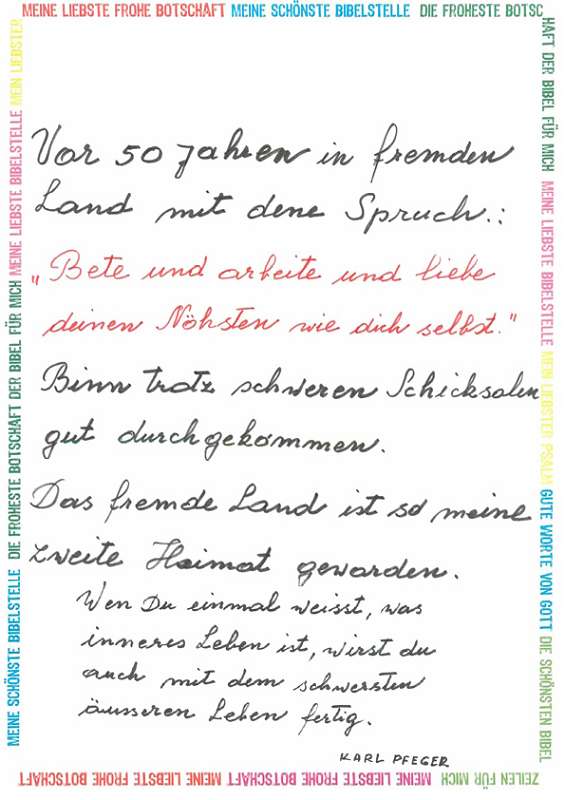 MEINE LIEBSTE FROHE BOTSCHAFT MEINE SCHÖNSTE BIBELSTELLE DIE FROHESTE BOTSC
HAFT DER BIBEL FÜR MICH MEINE LIEBSTE BIBELSTELLE MEIN LIEBSTER PSALM GUTE WORTE VON GOTT DIE SCHÖNSTEN BIBEL
ZEILEN FÜR MICH MEINE LIEBSTE FROHE BOTSCHAFT MEINE LIEBSTE FROHE BOTSCHAFT
MEINE SCHÖNSTE BIBELSTELLE DIE FROHESTE BOTSCHAFT DER BIBEL FÜR MICH MEINE LIEBSTE BIBELSTELLE MEIN LIEBSTER
Vor 50 Jahren in fremden
Land mit dene Spruch.:
„Bete und arbeite und liebe
deinen Nöhsten wie dich selbst."
Binn trotz schweren Schicksalen
gut durchgekommen.
Das fremde Land ist so meine
zweite Heimat geworden.
Wen Du einmal weisst, was
inneres Leben ist, wirst du
auch mit dem schwersten
äusseren Leben fertig.
KARL PFEGER